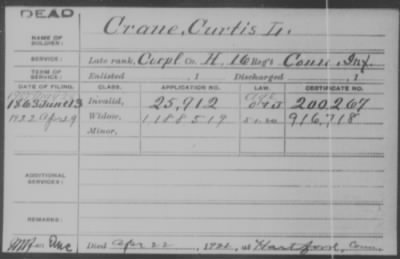 DEAD
NAME OF SOLDIER: Crane, Curtis L.
SERVICE: Late rank, Corpl Co. H, 16 Reg't Conn. Inf.
TERM OF SERVICE: Enlisted , 1 Discharged , 1
DATE OF FILING. CLASS. APPLICATION NO. LAW. CERTIFICATE NO.
1863 June 13 Invalid, 25,912 200,267
1922 Apr 29 Widow, 1188519 916,718
Minor,
ADDITIONAL SERVICES:
REMARKS:
Died Apr 22, 1922, at Hartford, Conn.